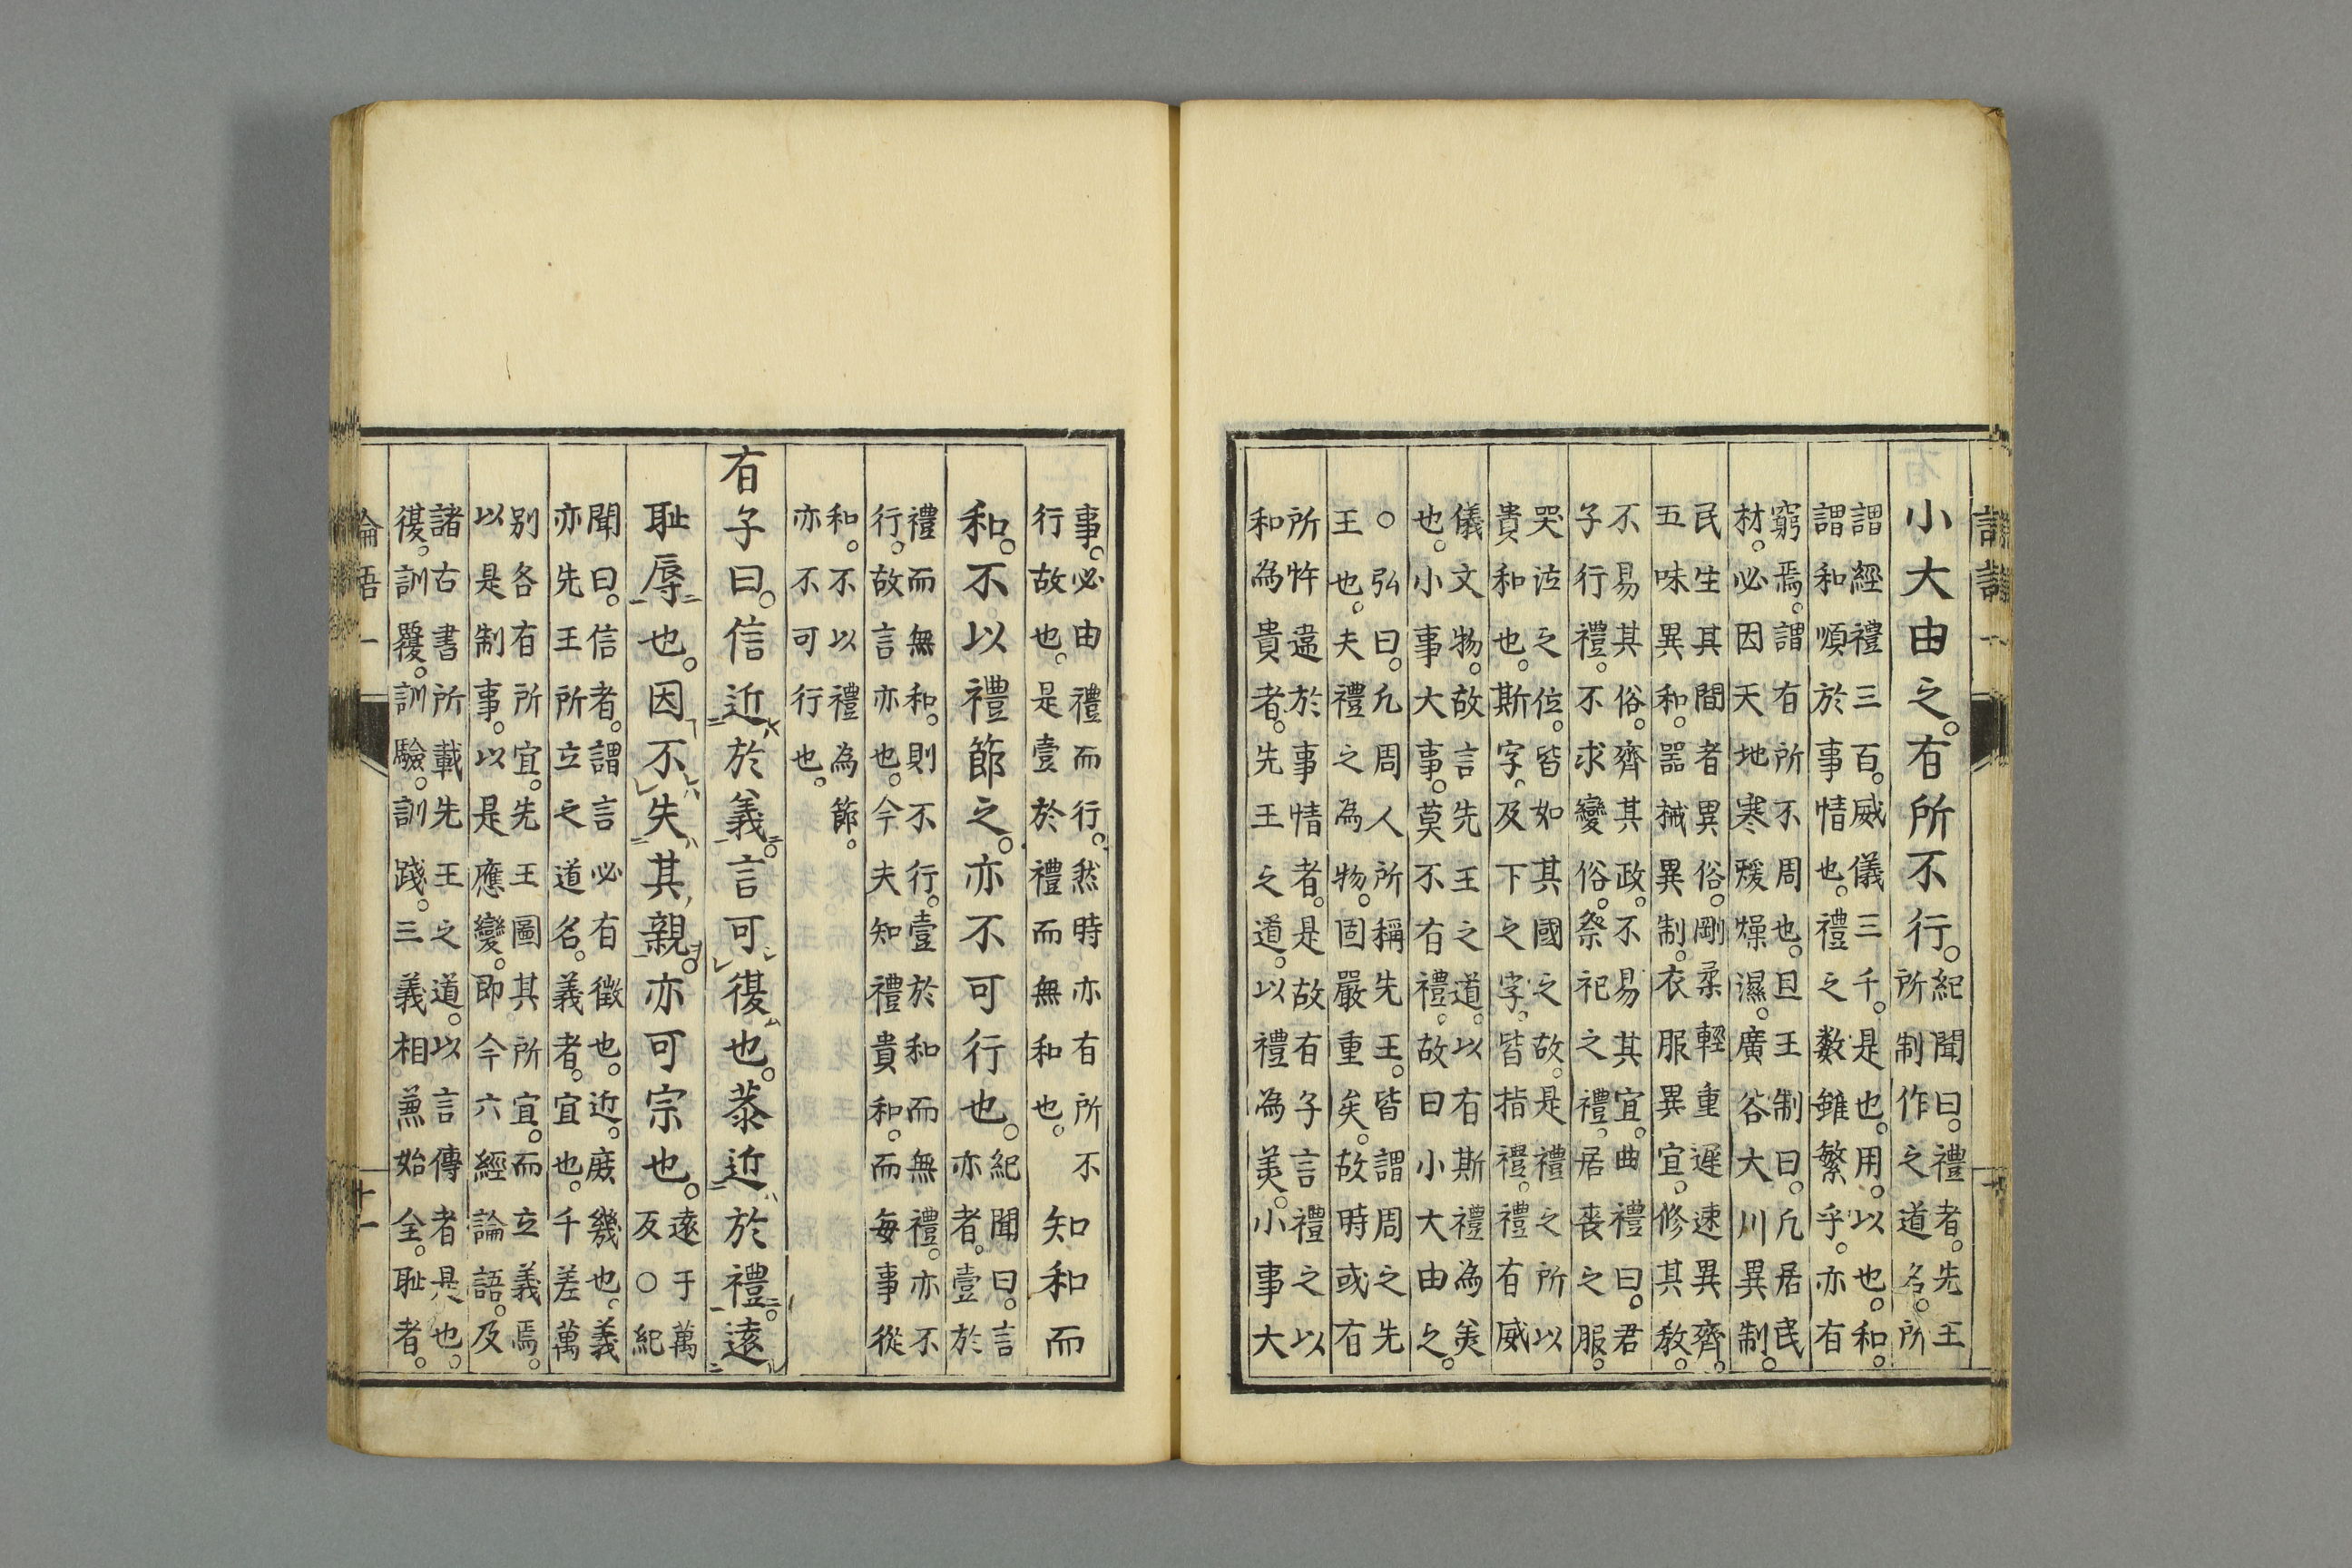 小大由之。有所不行。紀聞曰。禮者。先王
所制作之道名。所
謂經禮三百。威儀三千。是也。用。以也。和。
謂和順於事情也。禮之數雖繁乎。亦有
窮焉。謂有所不周也。且王制曰。凡居民
材。必因天地寒煖燥濕。廣谷大川異制。
民生其間者異俗。剛柔輕重遲速異齊。
五味異和。器械異制。衣服異宜。修其教。
不易其俗。齊其政。不易其宜。曲禮曰。君
子行禮。不求變俗。祭祀之禮。居喪之服。
哭泣之位。皆如其國之故。是禮之所以
貴和也。斯字。及下之字。皆指禮。禮有威
儀文物。故言先王之道。以有斯禮為美
也。小事大事。莫不有禮。故曰小大由之。
○弘曰。凡周人所稱先王。皆謂周之先
王也。夫禮之為物。固嚴重矣。故時或有
所忤違於事情者。是故有子言禮之以
和為貴者。先王之道。以禮為美。小事大
事。必由禮而行。然時亦有所不
行故也。是壹於禮而無和也。
知和而
和。不以禮節之。亦不可行也。紀聞曰。言
亦者。壹於
禮而無和。則不行。壹於和而無禮。亦不
行。故言亦也。今夫知禮貴和。而每事從
和。不以禮為節。
亦不可行也。
有子曰。信近於義。言可復也。恭近於禮。遠
耻辱也。因不失其親。亦可宗也。遠于萬
反○紀
聞曰。信者。謂言必有徵也。近。庶幾也。義
亦先王所立之道名。義者。宜也。千差萬
別各有所宜。先王圖其所宜。而立義焉。
以是制事。以是應變。即今六經論語。及
諸古書所載先王之道。以言傳者是也。
復。訓覆。訓驗。訓踐。三義相兼始全。耻者。
論語一
十一